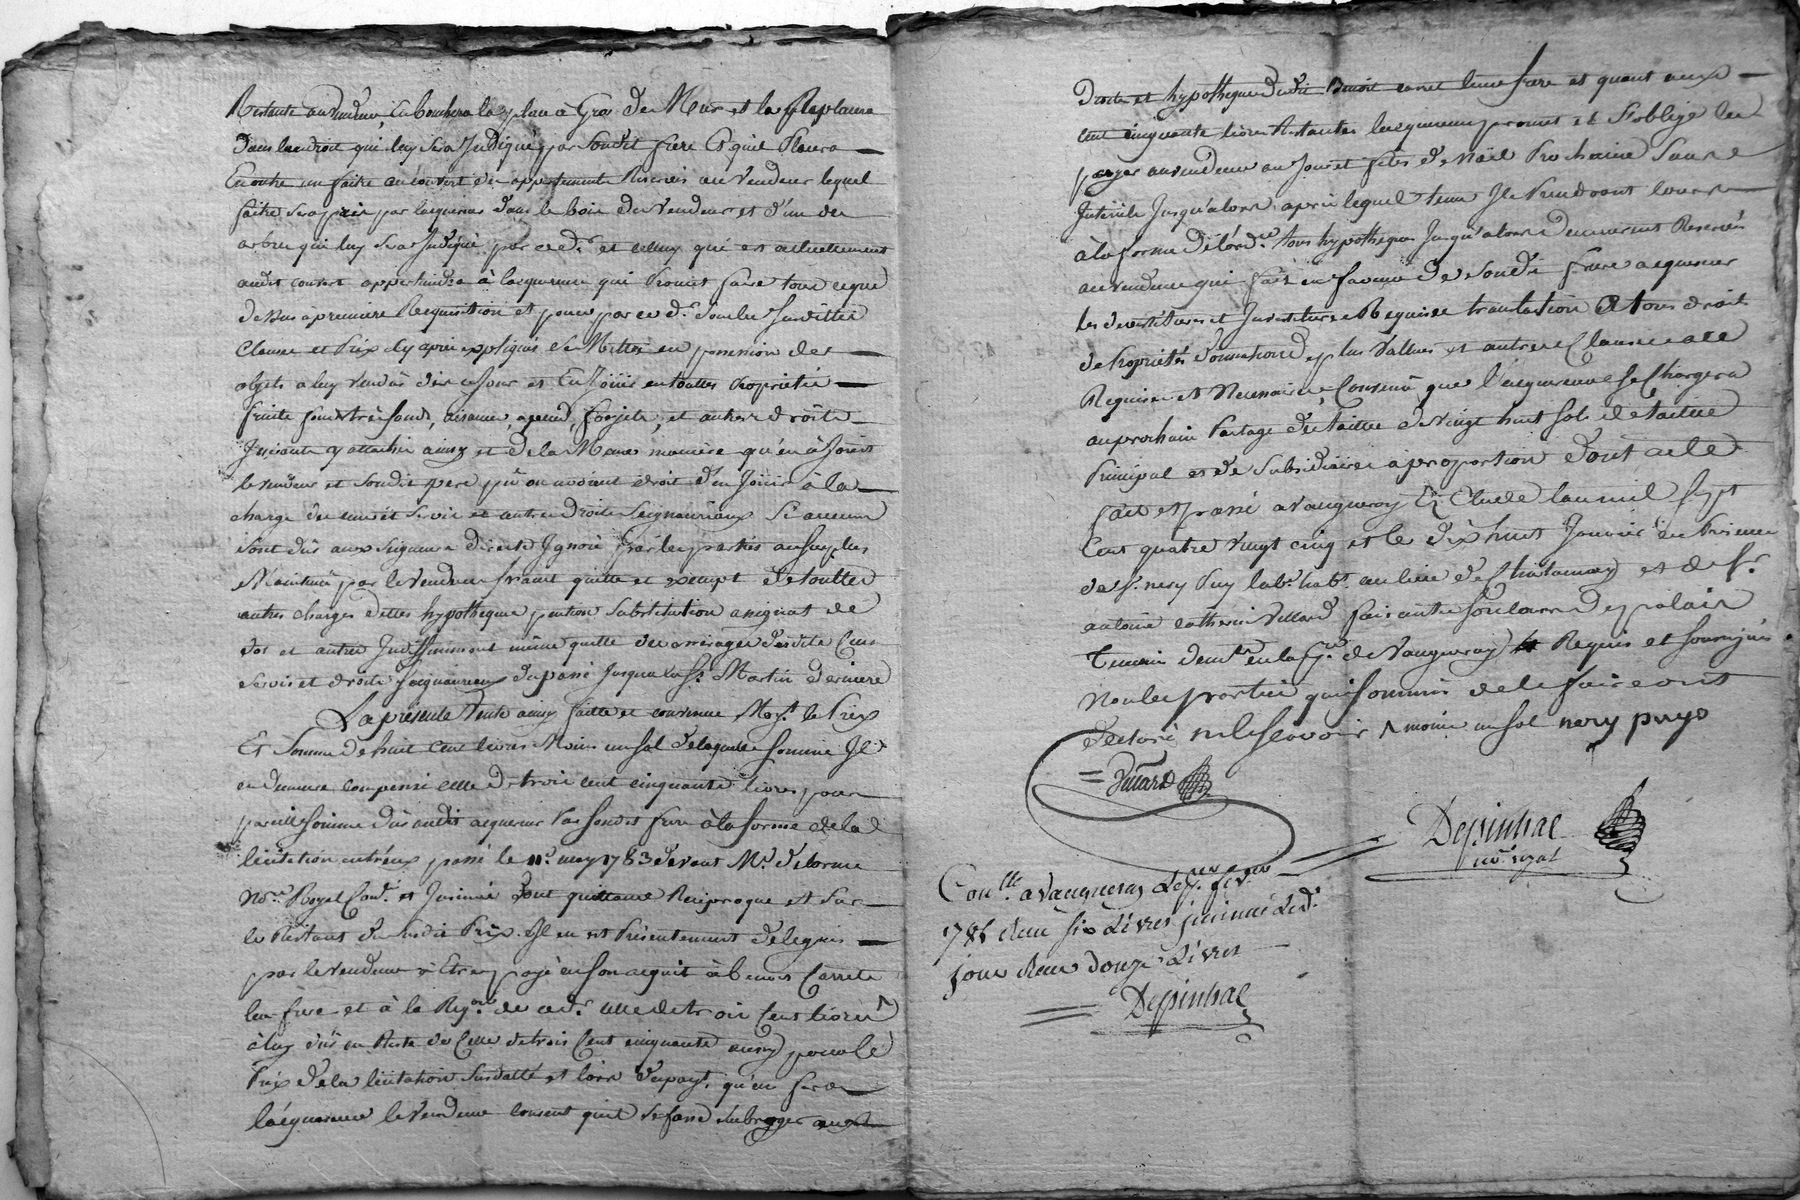 Restante au vendeur, en bouchera la place à Gros de Mur et la Replacera
dans landroit qui luy sera Indiqué par Sondit frere Et quil Placera
Enoutre un faite au couvert des appartements Reservés au vendeur lequel
faite sera pris par lacquereur dans le bois du vendeur et d'un des
arbres qui luy sera Indiqué par ced.r et celluy qui est actuellement
audit couvert appartiendra à lacquereur qui Promet faire tout ceque
dessus apremiere Requisition et pour par ce d.r sous les susdittes
Clauses et Prix cy apres expliqués se Mettre en possession des
objets a luy vendus dès cejour et En Joüir entoutte proprieté
fruits fonds très fonds, aisances, apend, forjets, et autres droits
Jceux y attachés ainsy et de la Meme maniere qu'en à Jouit
le vendeur et Sondit pere qu'on avoient droit d'en Joüir à la
charge des cens et servis et autres droits Seigneuriaux Si aucuns
sont dus aux seigneurs directs Ignoré par les parties ausurplus
Maintenu par le vendeur franc quitte et exempt detouttes
autres charges dettes hypotheques pention substitution assignat de
dot et autres Indifiniment même quitte des arrerages desdits Cens
servis et droits seigneuriaux du passé Jusqua la St. Martin derniere
La présente Vente ainsy faitte et convenue Moy.t le Prix
Et Somme de huit cent livres Moins un sol delaquelle somme Il
en demeure compensé celle de trois cent cinquante livres pour
pareille somme düe audit acquereur Par Sondit frere à la forme de la
licitation entr'eux passé le 11.e may 1783 devant M.e delorme
No.re Royal Con.t et Jnsinué dont quittance Reciproque et Sur
le Restant du susdit Prix Il en est Présentement delegué
par le vendeur à Etre payé en son acquit à Benoit Carret
leur frere et à la Req.on de ce d.r celle de trois Cent livres
à luy düe en Reste de Celle de trois Cent cinquante aussy pour le
Prix de la licitation susdatté et lors du pay.t qu'en fera
lacquereur le Vendeur consent quil se fasse subroger aux
Droits et hypotheques dudit Benoit carret leur frere et quant aux
cent cinquante livres Restantes lacquereur promet et S'oblige les
payer au vendeur au Jour et fetes de Noël Prochaine Sans
Interêts Jusqu'alors, apres lequel tems Ils Prendront cours
à la forme de l'ord.ce tous hypotheques Jusqu'alors demeurent Reservés
au vendeur qui fait en faveur de sondit frere acquereur
les devestitures et Investiture Requises translation de tous droits
de Proprietés donnations des plus vallues et autres Clauses à ce
Requises et Necessaires, Convenu que l'acquereur se Chargera
au prochain Partage de tailles de vingt huit sols de taille
Principal et de subsidiaire à proportion dont acte
fait et passé a vaugneray En Etude lan mil Sept
Cent quatre vingt cinq et le dix huit Janvier En Presence
de Sr. nery Puy lab.r hab.t au lieu de Chatanay et de Sr.
antoine catherin Villard faisant ses cours de palais
temoins dem.ts en la p.sse de Vaugneray Requis et soussignés
Non les parties qui sommées de le faire ont
declaré ne le scavoir ^ moins un sol nery puys
= Villard
Despinhac
no.re royal
Con.lle a vaugneray le p.er fev.er
1785 Reçu six livres jnsinué led.t
jour Reçu douze Livres
Despinhac